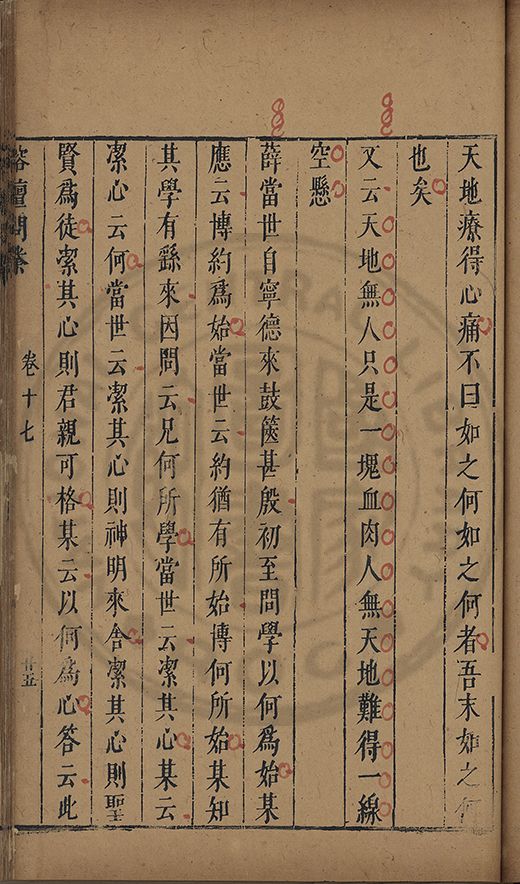 天地療得心痛不曰如之何如之何者吾末如之何
也矣
又云天地無人只是一塊血肉人無天地難得一線
空懸
薛當世自寧德來鼓篋甚殷初至問學以何爲始某
應云博約爲始當世云約猶有所始博何所始某知
其學有繇來因問云兄何所學當世云潔其心某云
潔心云何當世云潔其心則神明來舍潔其心則聖
賢爲徒潔其心則君親可格某云以何爲心答云此
榕壇問業
卷十七
廿五